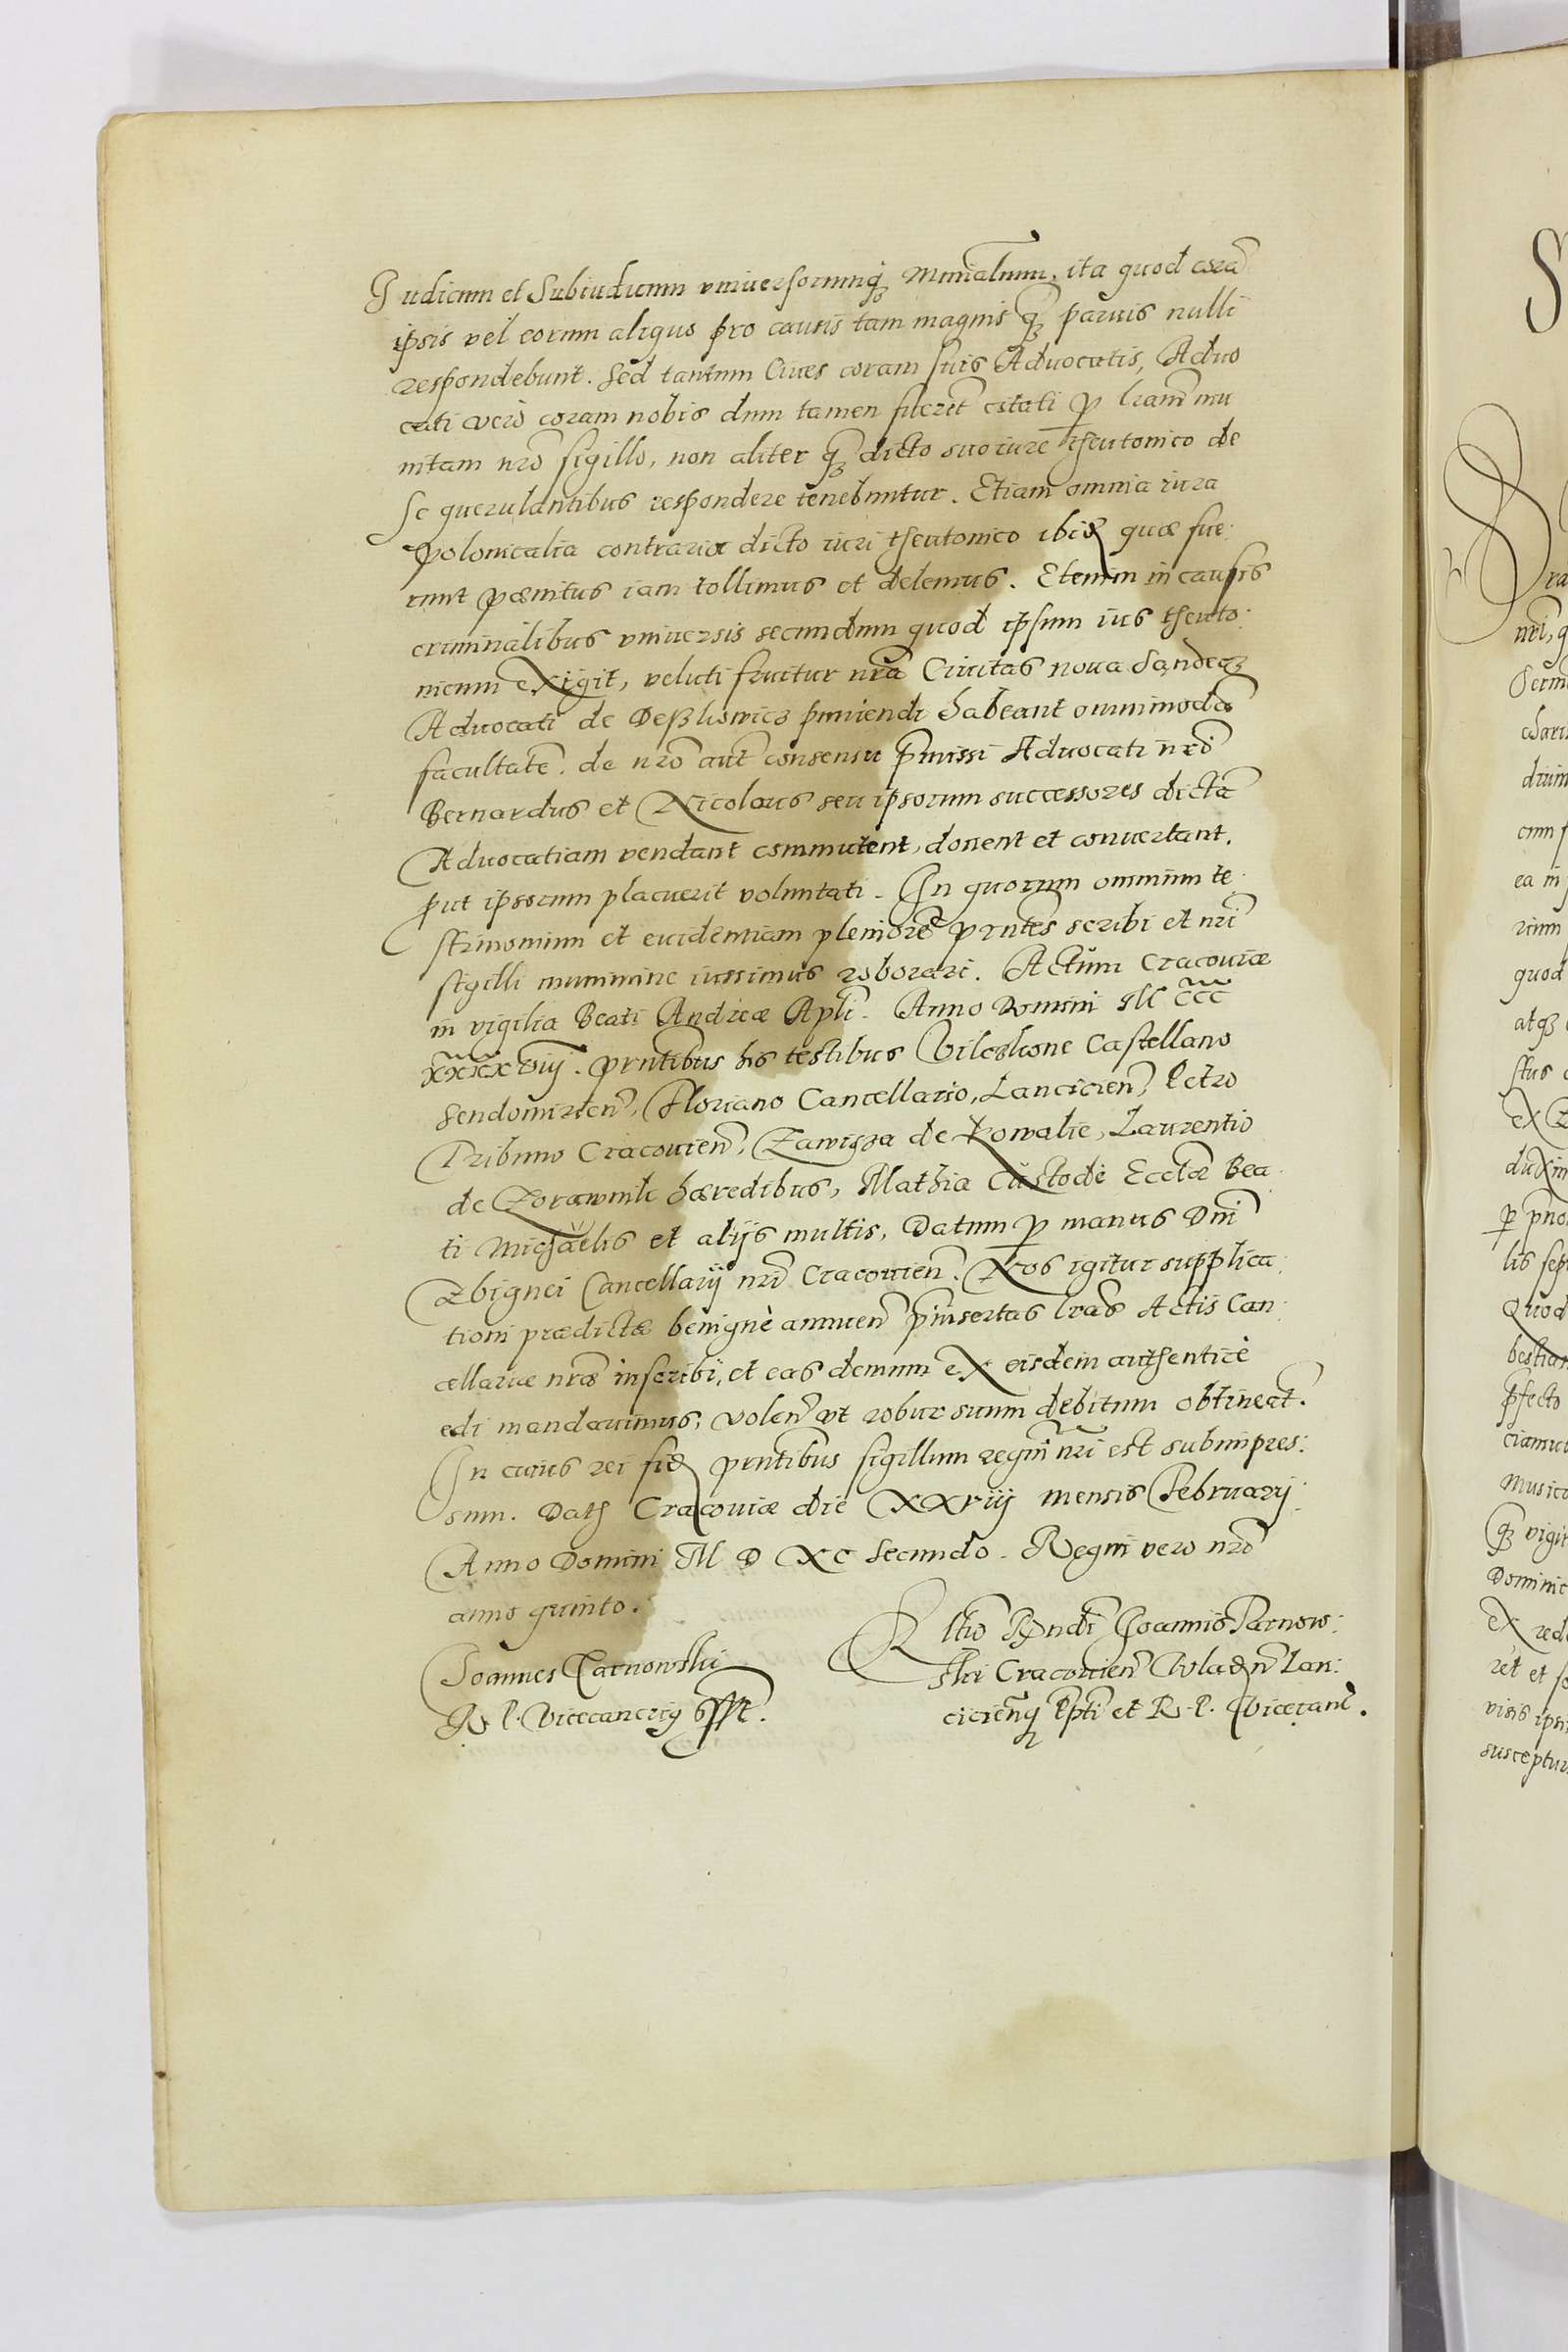 Judicum et Subiudicum vniuersorumq₃ Minĩalium, ita quod corã
ipsis vel eorum aliquo pro causis tam magnis q̃₃ paruis nulli
respondebunt. Sed tantum Ciues coram suis Aduocatis, Aduo
cati verò coram nobis dum tamen fuerĩt citati ꝑ lr̃am mu
nitam nr̃o sigillo, non aliter q̃₃ dicto suo iure theutonico de
se querulantibus respondere tenebuntur. Etiam omnia iura
Polonicalia contraria dicto iuri theutonico ibid₃ quæ fue:
runt pænitus iam tollimus et delemus. Etenim in causis
criminalibus vniuersis secundum quod ipsum ius theuto:
nicum exigit, veluti fruitur nr̃a Ciuitas noua Sandecz
Aduocati de Deßliowicz puniendi habeant omnimodã
facultatẽ. de nr̃o aũt consensu p̃missi Aduocati nr̃i
Bernardus et Nicolaus seu ipsorum successores dictã
Aduocatiam vendant commutent, donent et conuertant.
put ipsorum placuerit voluntati. In quorum omnium te:
stimonium et euidentiam pleniorẽ p̃ntes scribi et nr̃i
sigilli munimine iussimus roborari. Actum Cracouiæ
in vigilia Beati Andreæ Apl̃i. Anno Domini M CCC
XXXX VIIJ. p̃ntibus his testibus Vilczkone Castellano
Sendomirien̄, Floriano Cancellario, Lancicien̄, Petro
Tribuno Cracouien̄, Zawisza de Kowalie, Laurentio
de Zorawnik hæredibus, Mathia Custode Eccl̃æ Bea:
ti Michaëlis et alijs multis, Datum ꝑ manus Dnĩ
Zbignei Cancellarij nr̃i Cracouien̄. Nos igitur supplica:
tioni prædictæ benignè annuen̄ p̃insertas lr̃as Actis Can:
cellariæ nr̃æ inscribi, et eas demum ex eisdem authenticè
edi mandauimus, volen̄ vt robur suum debitum obtineat.
In cuius rei fid₃ p̃ntibus sigillum regni nr̃i est subimpres:
sum. Dat₃ Cracouiæ die XXVIIJ mensis Februarij
Anno Domini M D XC secundo. Regni vero nr̃i
anno quinto.
Joannes Tarnowski
R. P. Vicecancrĩ₉ sst.
Rltĩo Rx̃ndi Joannis Tarnow:
ski Cracouien̄ Wlad₃n̄ Lan:
cicien̄q₃ P̃pti et R. P. Vicecanc̃.